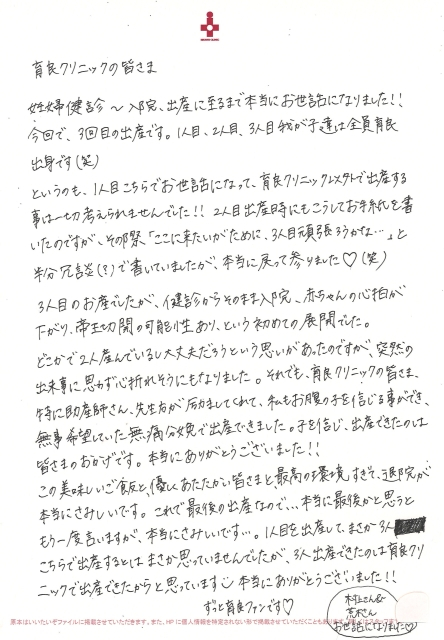 育良クリニックの皆さま
妊婦健診～入院、出産に至るまで本当にお世話になりました!!
今回で、3回目の出産です。1人目、2人目、3人目我が子達は全員育良
出身です(笑)
というのも、1人目こちらでお世話になって、育良クリニック以外で出産する
事は一切考えられませんでした!! 2人目出産時にもこうしてお手紙を書
いたのですが、その際「ここに来たいがために、3人目頑張ろうかな…」と
半分冗談(?)で書いていましたが、本当に戻って参りました♡(笑)
3人目のお産でしたが、健診からそのまま入院、赤ちゃんの心拍が
下がり、帝王切開の可能性あり、という初めての展開でした。
どこかで2人産んでいるし大丈夫だろうという思いがあったのですが、突然の
出来事に思わず心折れそうにもなりました。それでも、育良クリニックの皆さま、
特に助産師さん、先生方が励ましてくれて、私もお腹の子を信じる事ができ、
無事希望していた無痛分娩で出産できました。子を信じ、出産できたのは
皆さまのおかげです。本当にありがとうございました!!
この美味しいご飯と、優しくあたたかい皆さまと、最高の環境すぎて、退院が
本当にさみしいです。これで最後の出産なので…、本当に最後かと思うと
もう一度言いますが、本当にさみしいです…。1人目を出産して、まさか3人
こちらで出産するとはまさか思っていませんでしたが、3人出産できたのは育良クリ
ニックで出産できたからと思います☺本当にありがとうございました!!
ずっと育良ファンです♡
村上さん&
荒木さん
お世話になりました♡